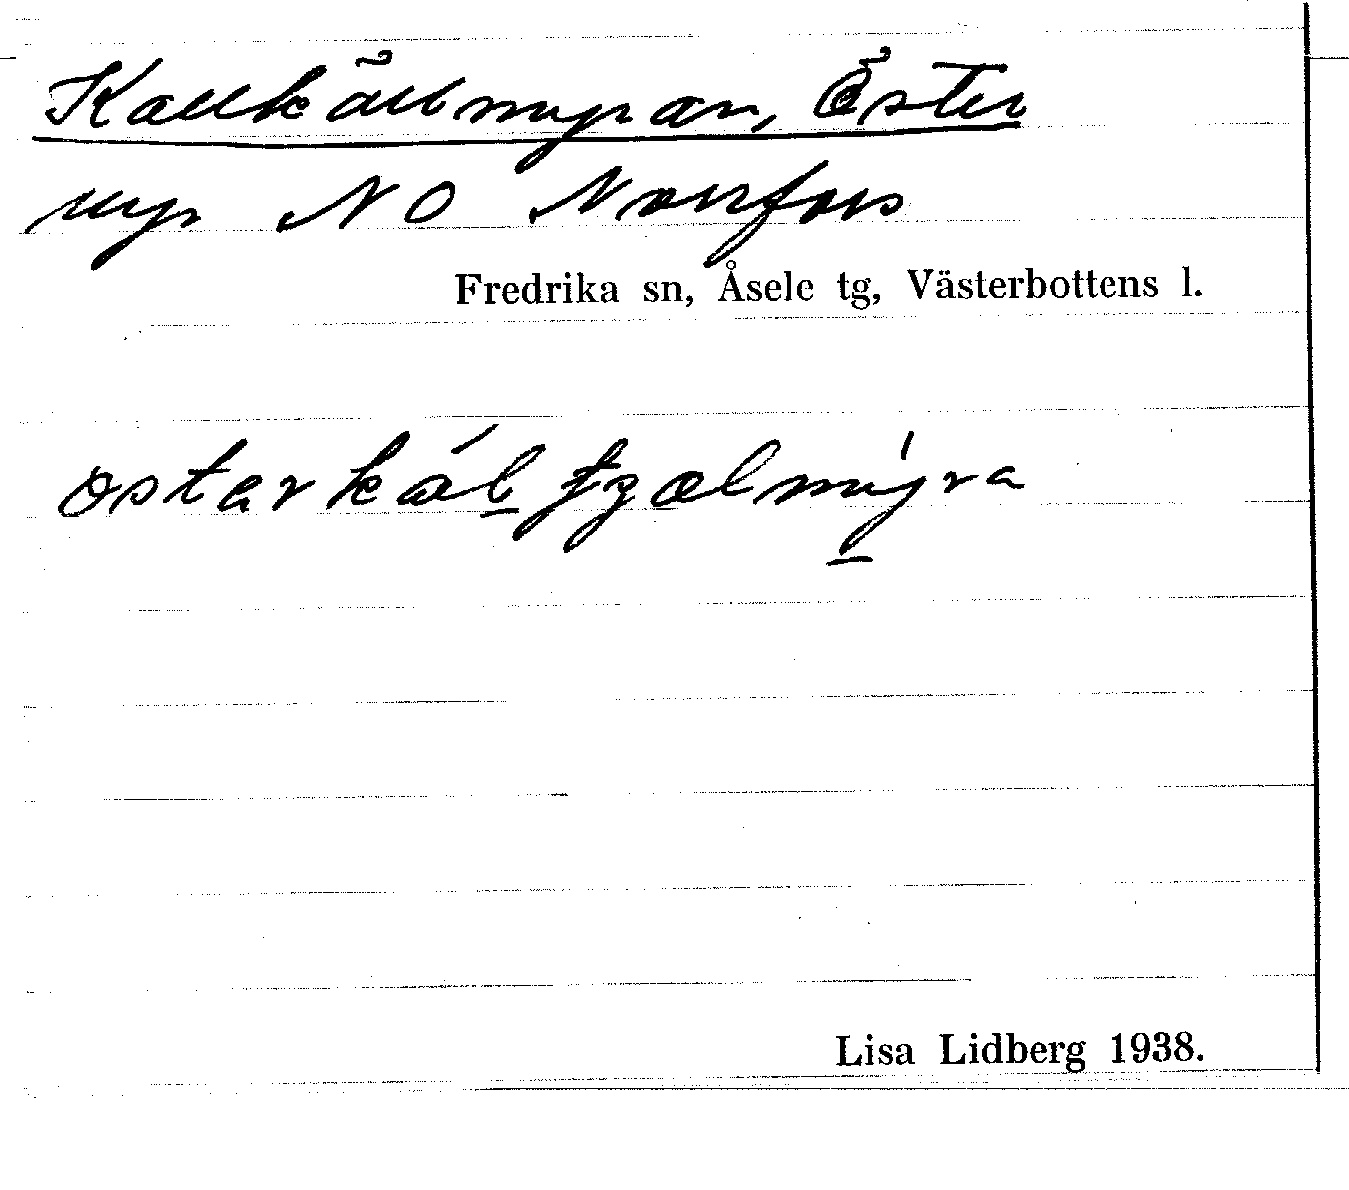 Kallkällmyran, Öster
myr NO Norrfors
Fredrika sn, Åsele tg, Västerbottens l.
østarkál̲ʄʒælmý̲ra
Lisa Lidberg 1938.